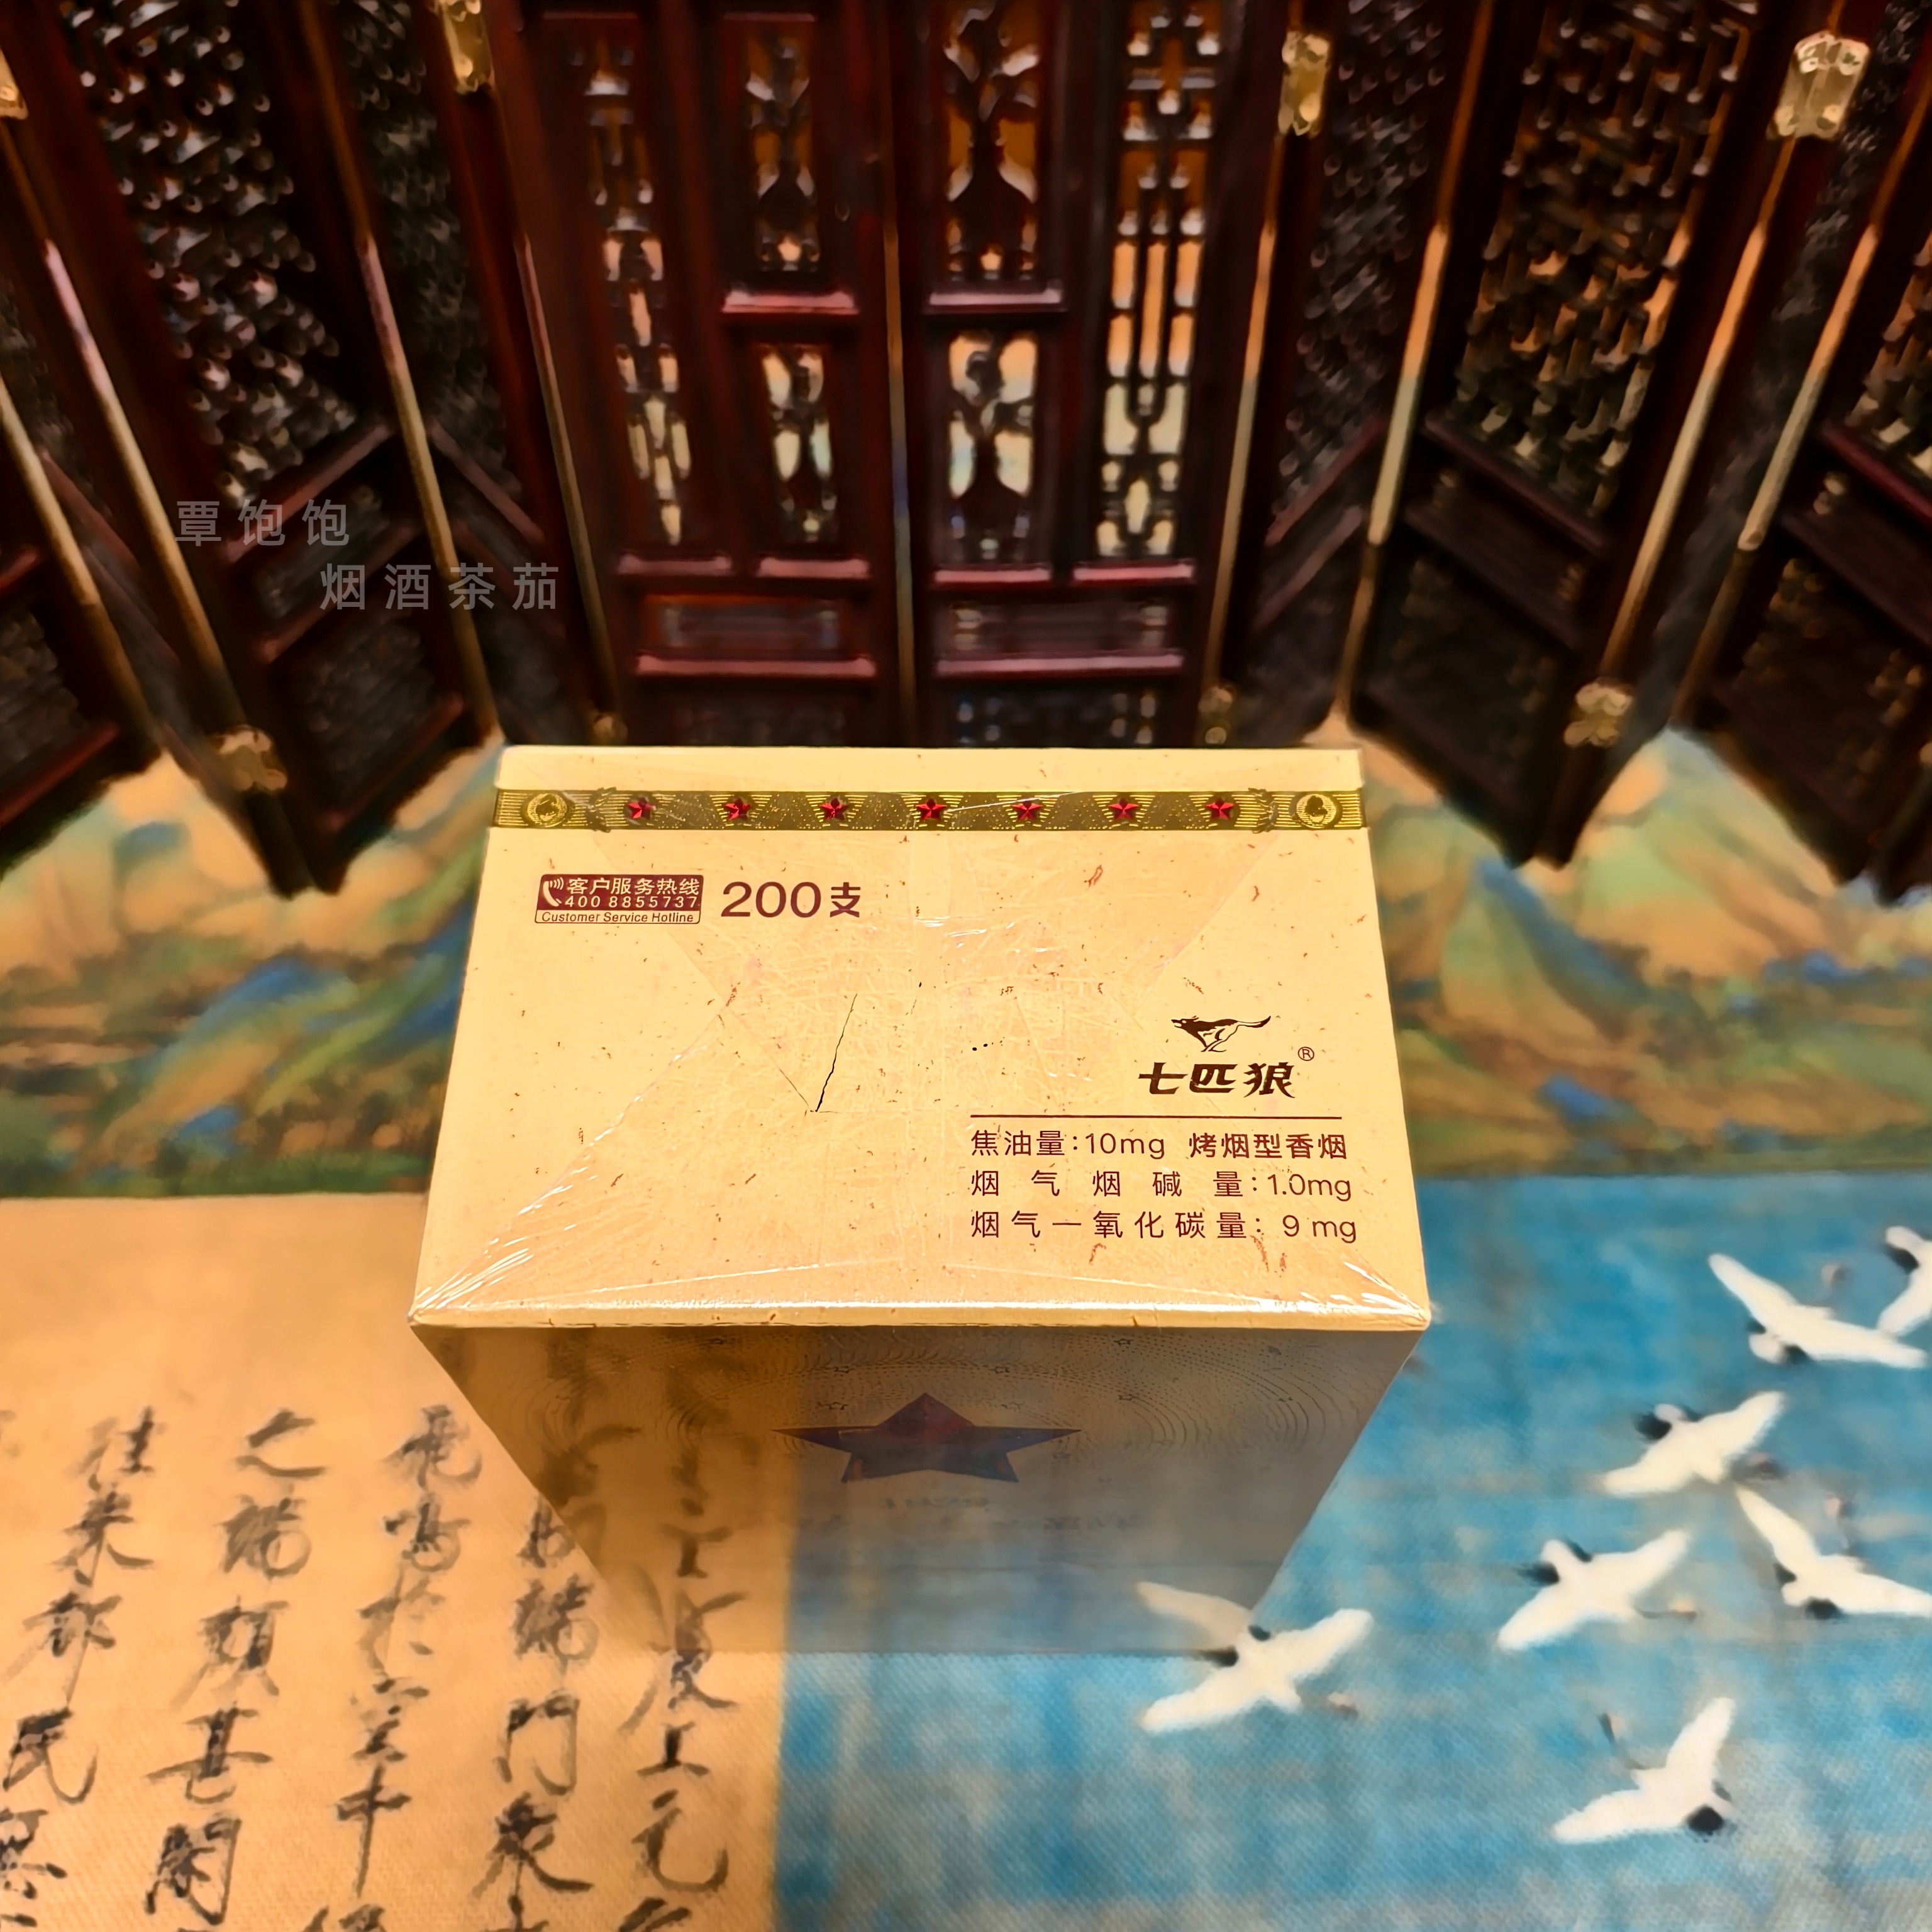 覃饱饱
烟酒茶茄
客户服务热线
400 8855737
Customer Service Hotline
200支
七匹狼®
焦油量:10mg 烤烟型香烟
烟气烟碱量:1.0mg
烟气一氧化碳量: 9 mg
往来都民
之端頗甚闌
飛鳴於空中
端門衆
上元